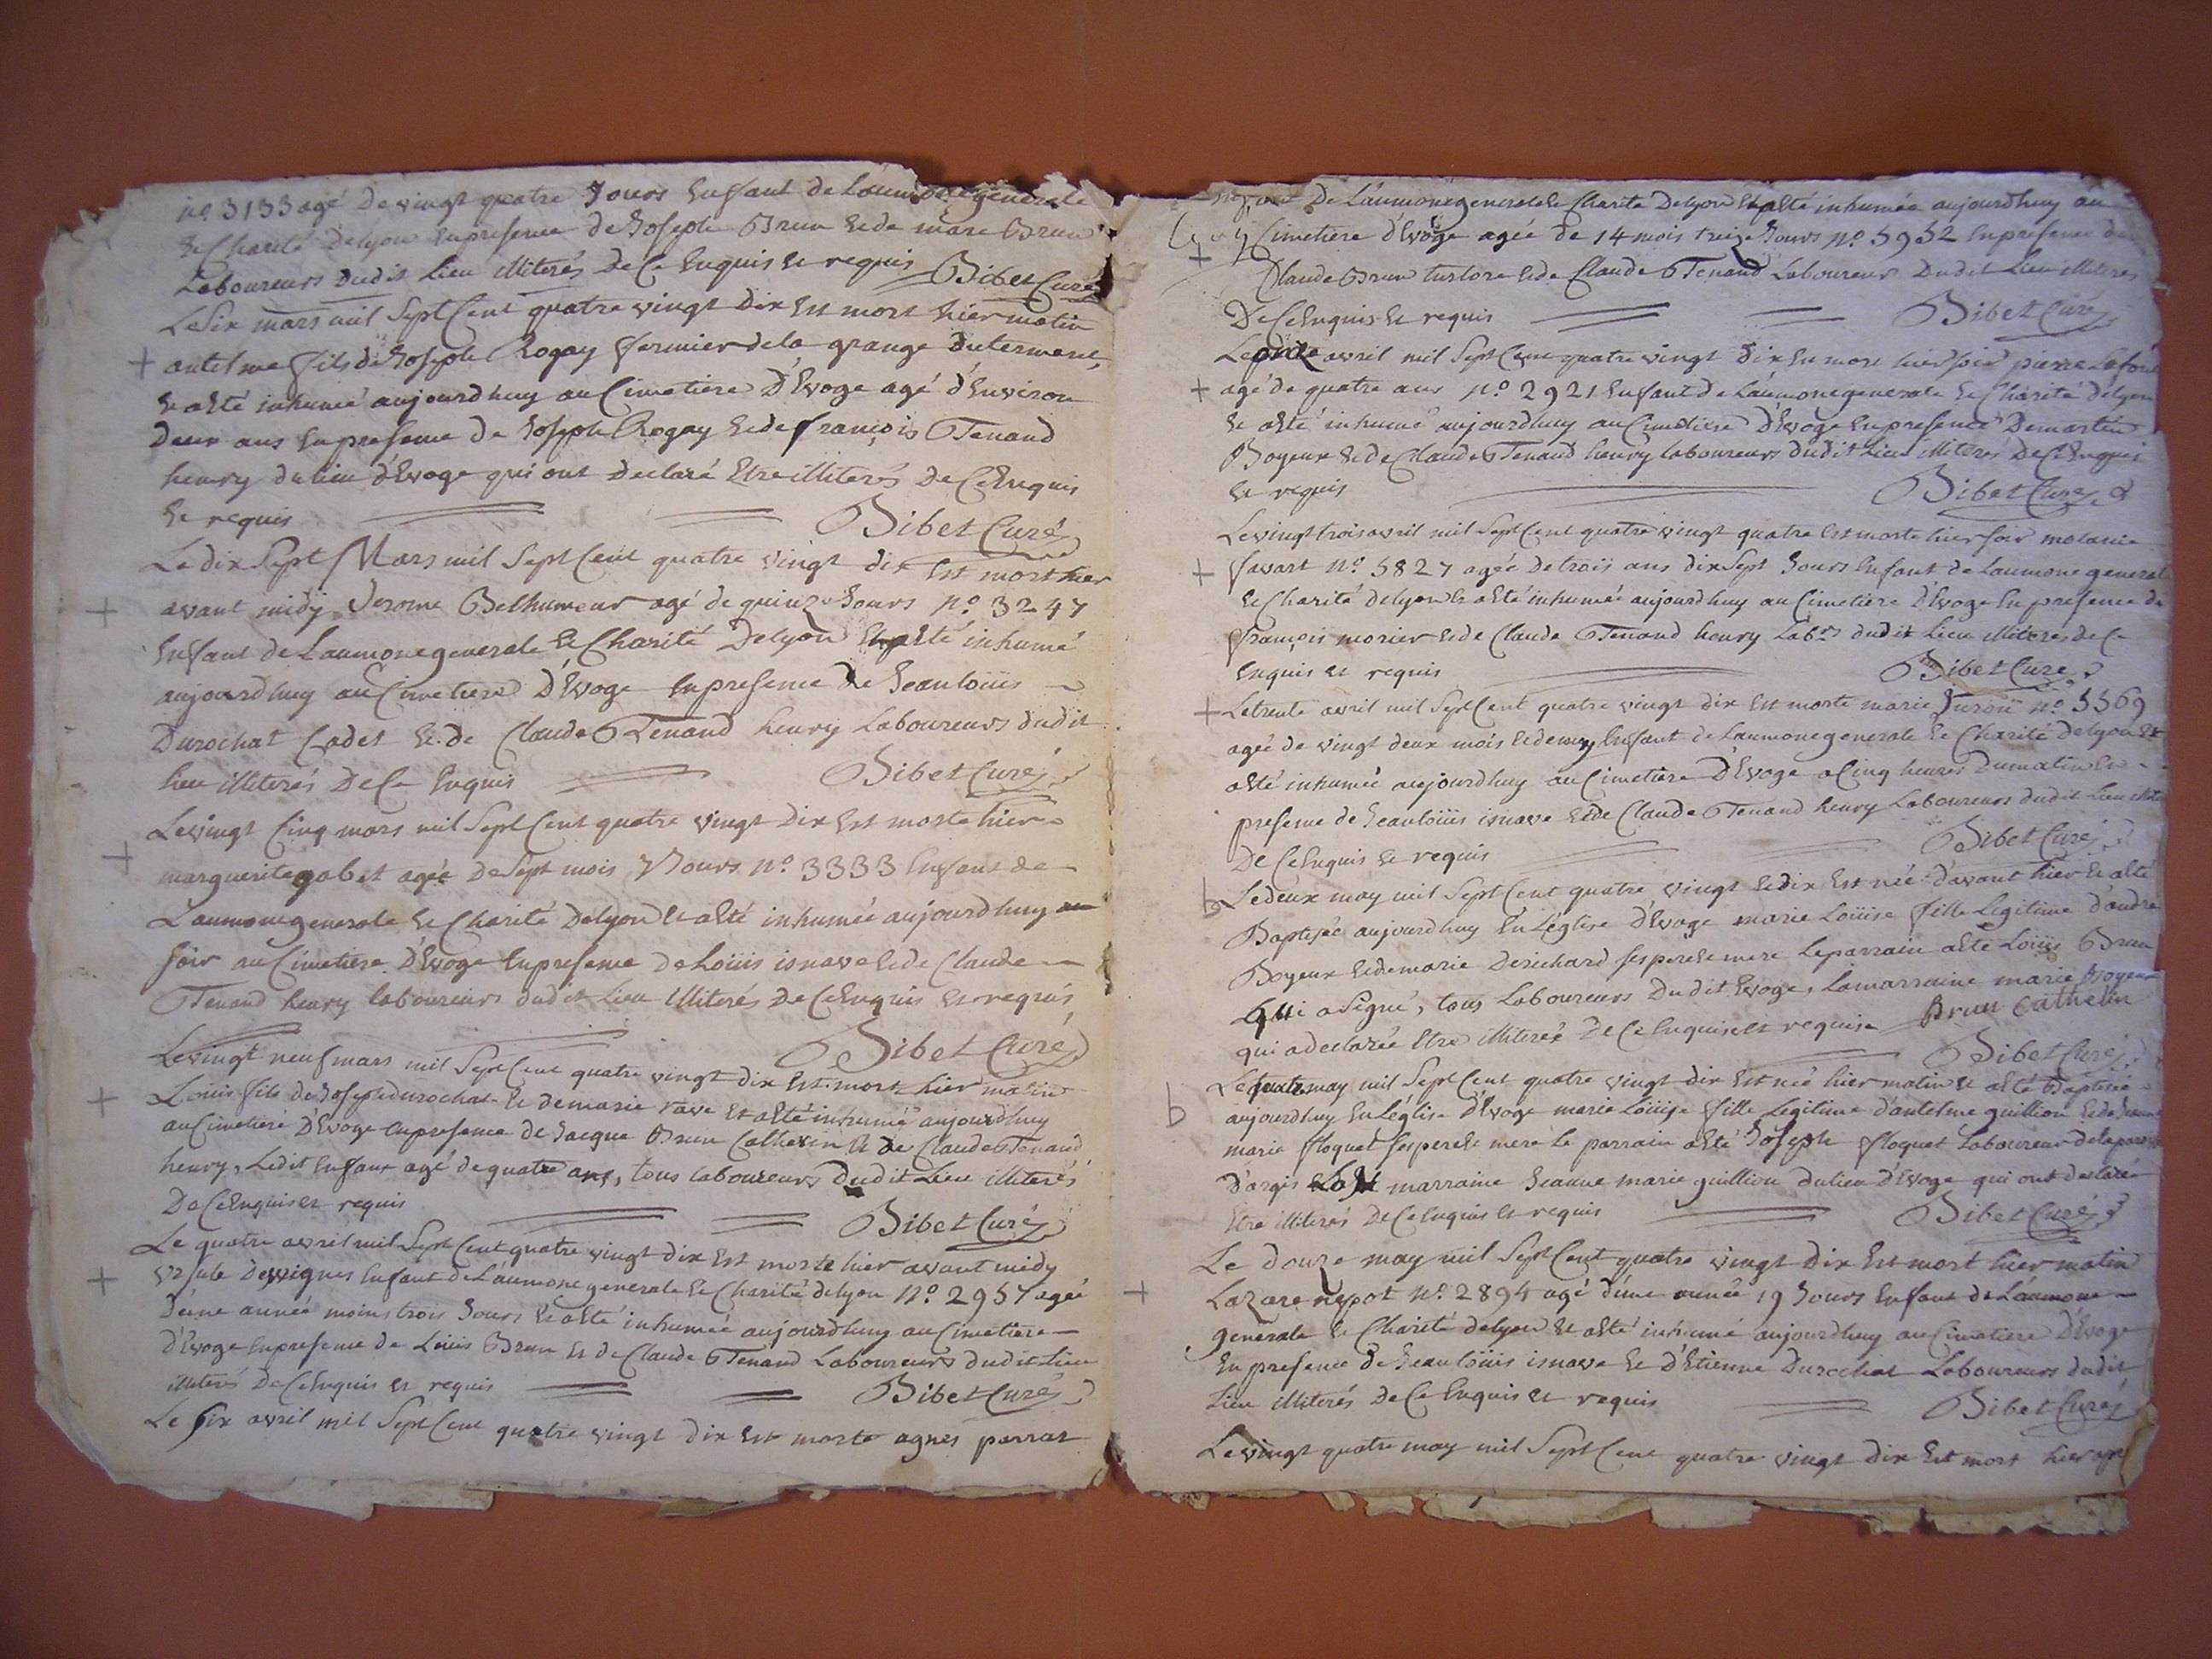 no 3133 agé De vingt quatre Jours Enfant de Laumone generale
et Charité Delyon En presence de Joseph Brun et de marc Brun
Laboureurs dudit Lieu illiterés De Ce Enquis et requis Bibet Curé
Le Six mars mil Sept Cent quatre vingt Dix Est mort hier matin
antelme fils de Joseph Rogay fermier de la grange
et a Eté inhumé aujourdhuy au Cimetiere D'Evoge agé d'Environ
Deux ans En presence de Joseph Rogay et de françois Tenand
henry du lieu d'Evoge qui ont Declaré Etre illiterés De Ce Enquis
et requis Bibet Curé
Le dix Sept Mars mil Sept Cent quatre vingt dix Est mort hier
avant midy Jerome Belhumeur agé de quinze Jours No. 3247
Enfant de Laumone generale et Charité Delyon Et a Eté inhumé
aujourdhuy au Cimetiere D'Evoge En presence De Jean loüis
Durochat Cadet et de Claude Tenand henry Laboureurs dudit
lieu illiterés De Ce Enquis Bibet Curé
Le vingt Cinq mars mil Sept Cent quatre vingt Dix Est morte hier
marguerite gobet agée De Sept mois 7 Jours No. 3333 Enfant de
L'aumone generale et Charité Delyon et a Eté inhumée aujourdhuy
soir au Cimetiere D'Evoge En presence De Loüis isnave et de Claude
Tenand henry laboureurs dudit Lieu illiterés De Ce Enquis et requis
Bibet Curé
Le vingt neuf mars mil Sept Cent quatre vingt dix Est mort hier matin
Louis fils de Joseph durochat et de marie rave Et a Eté inhumé aujourdhuy
au Cimetiere D'Evoge En presence de Jacque Brun Cathelin et de Claude Tenand
henry, Ledit Enfant agé de quatre ans, tous laboureurs Dudit Lieu illiterés
De Ce Enquis et requis Bibet Curé
Le quatre avril mil Sept Cent quatre vingt dix Est morte hier avant midy
ursule Desvignes Enfant de L'aumone generale et Charité delyon No. 2957 agée
d'une année moins trois Jours et a Eté inhumée aujourdhuy au Cimetiere
D'Evoge En presence de Loüis Brun et de Claude Tenand Laboureurs dudit Lieu
illiterés De Ce Enquis et requis Bibet Curé
Le Six avril mil Sept Cent quatre vingt dix Est morte agnes perrat
Enfant De L'aumone generale et Charité Delyon Et a Eté inhumée aujourdhuy au
Cimetiere d'Evoge agée de 14 mois treize Jours No. 5952 En presence de
Claude Brun et de Claude Tenand Laboureurs Dudit Lieu illiterés
De Ce Enquis et requis Bibet Curé
Le onze avril mil Sept Cent quatre vingt Dix Est mort hier soir pierre
agé de quatre ans No. 2921 Enfant de L'aumone generale et Charité delyon
et a Eté inhumé aujourdhuy au Cimetiere D'Evoge En presence De martin
Boyeux et de Claude Tenand henry laboureurs dudit Lieu illiterés De Ce Enquis
et requis Bibet Curé
Le vingt trois avril mil Sept Cent quatre vingt quatre Est morte hier soir melanie
favart No. 5827 agée de trois ans dix Sept Jours Enfant de Laumone generale
et Charité delyon et a Eté inhumée aujourdhuy au Cimetiere D'Evoge En presence de
françois morier et de Claude Tenand henry Labrs dudit Lieu illiterés de Ce
Enquis et requis Bibet Curé
Le trente avril mil Sept Cent quatre vingt dix Est morte marie No. 5569
agée de vingt deux mois et demy Enfant de Laumone generale et Charité Delyon et
a Eté inhumée aujourdhuy au Cimetiere D'Evoge a Cinq heures Du matin En
presence de Jean loüis isnave et de Claude Tenand henry Laboureurs dudit Lieu
De Ce Enquis et requis Bibet Curé
b Le deux may mil Sept Cent quatre vingt et dix Est née d'avant hier et a Eté
Baptisée aujourdhuy En L'église d'Evoge marie Loüise fille Legitime d'andré
Boyeux et de marie Derichard ses pere et mere Le parrain a Eté Loüis Brun
qui a Signé, tous Laboureurs Dudit Evoge, La marraine marie Boyeux
qui a declarée Etre illiterée De Ce Enquise et requise Brun Cathelin
Bibet Curé
b Le quatre may mil Sept Cent quatre vingt dix Est née hier matin et a Eté Baptisée
aujourdhuy En L'église d'Evoge marie Loüise fille Legitime d'antelme guillion et de Jeanne
marie floquet ses pere et mere Le parrain a Eté Joseph floquet Laboureur de la paroisse
D'argis marraine Jeanne marie guillion du lieu d'Evoge qui ont declaré
Etre illiterés De Ce Enquis et requis Bibet Curé
Le douze may mil Sept Cent quatre vingt dix Est mort hier matin
Lazare nepot No. 2894 agé d'une année 19 Jours Enfant de L'aumone
generale et Charité delyon et a Eté inhumé aujourdhuy au Cimetiere D'Evoge
En presence De Jean loüis isnave et D'Etienne Durochat Laboureurs dudit
Lieu illiterés De Ce Enquis et requis Bibet Curé
Le vingt quatre may mil Sept Cent quatre vingt dix Est mort hier